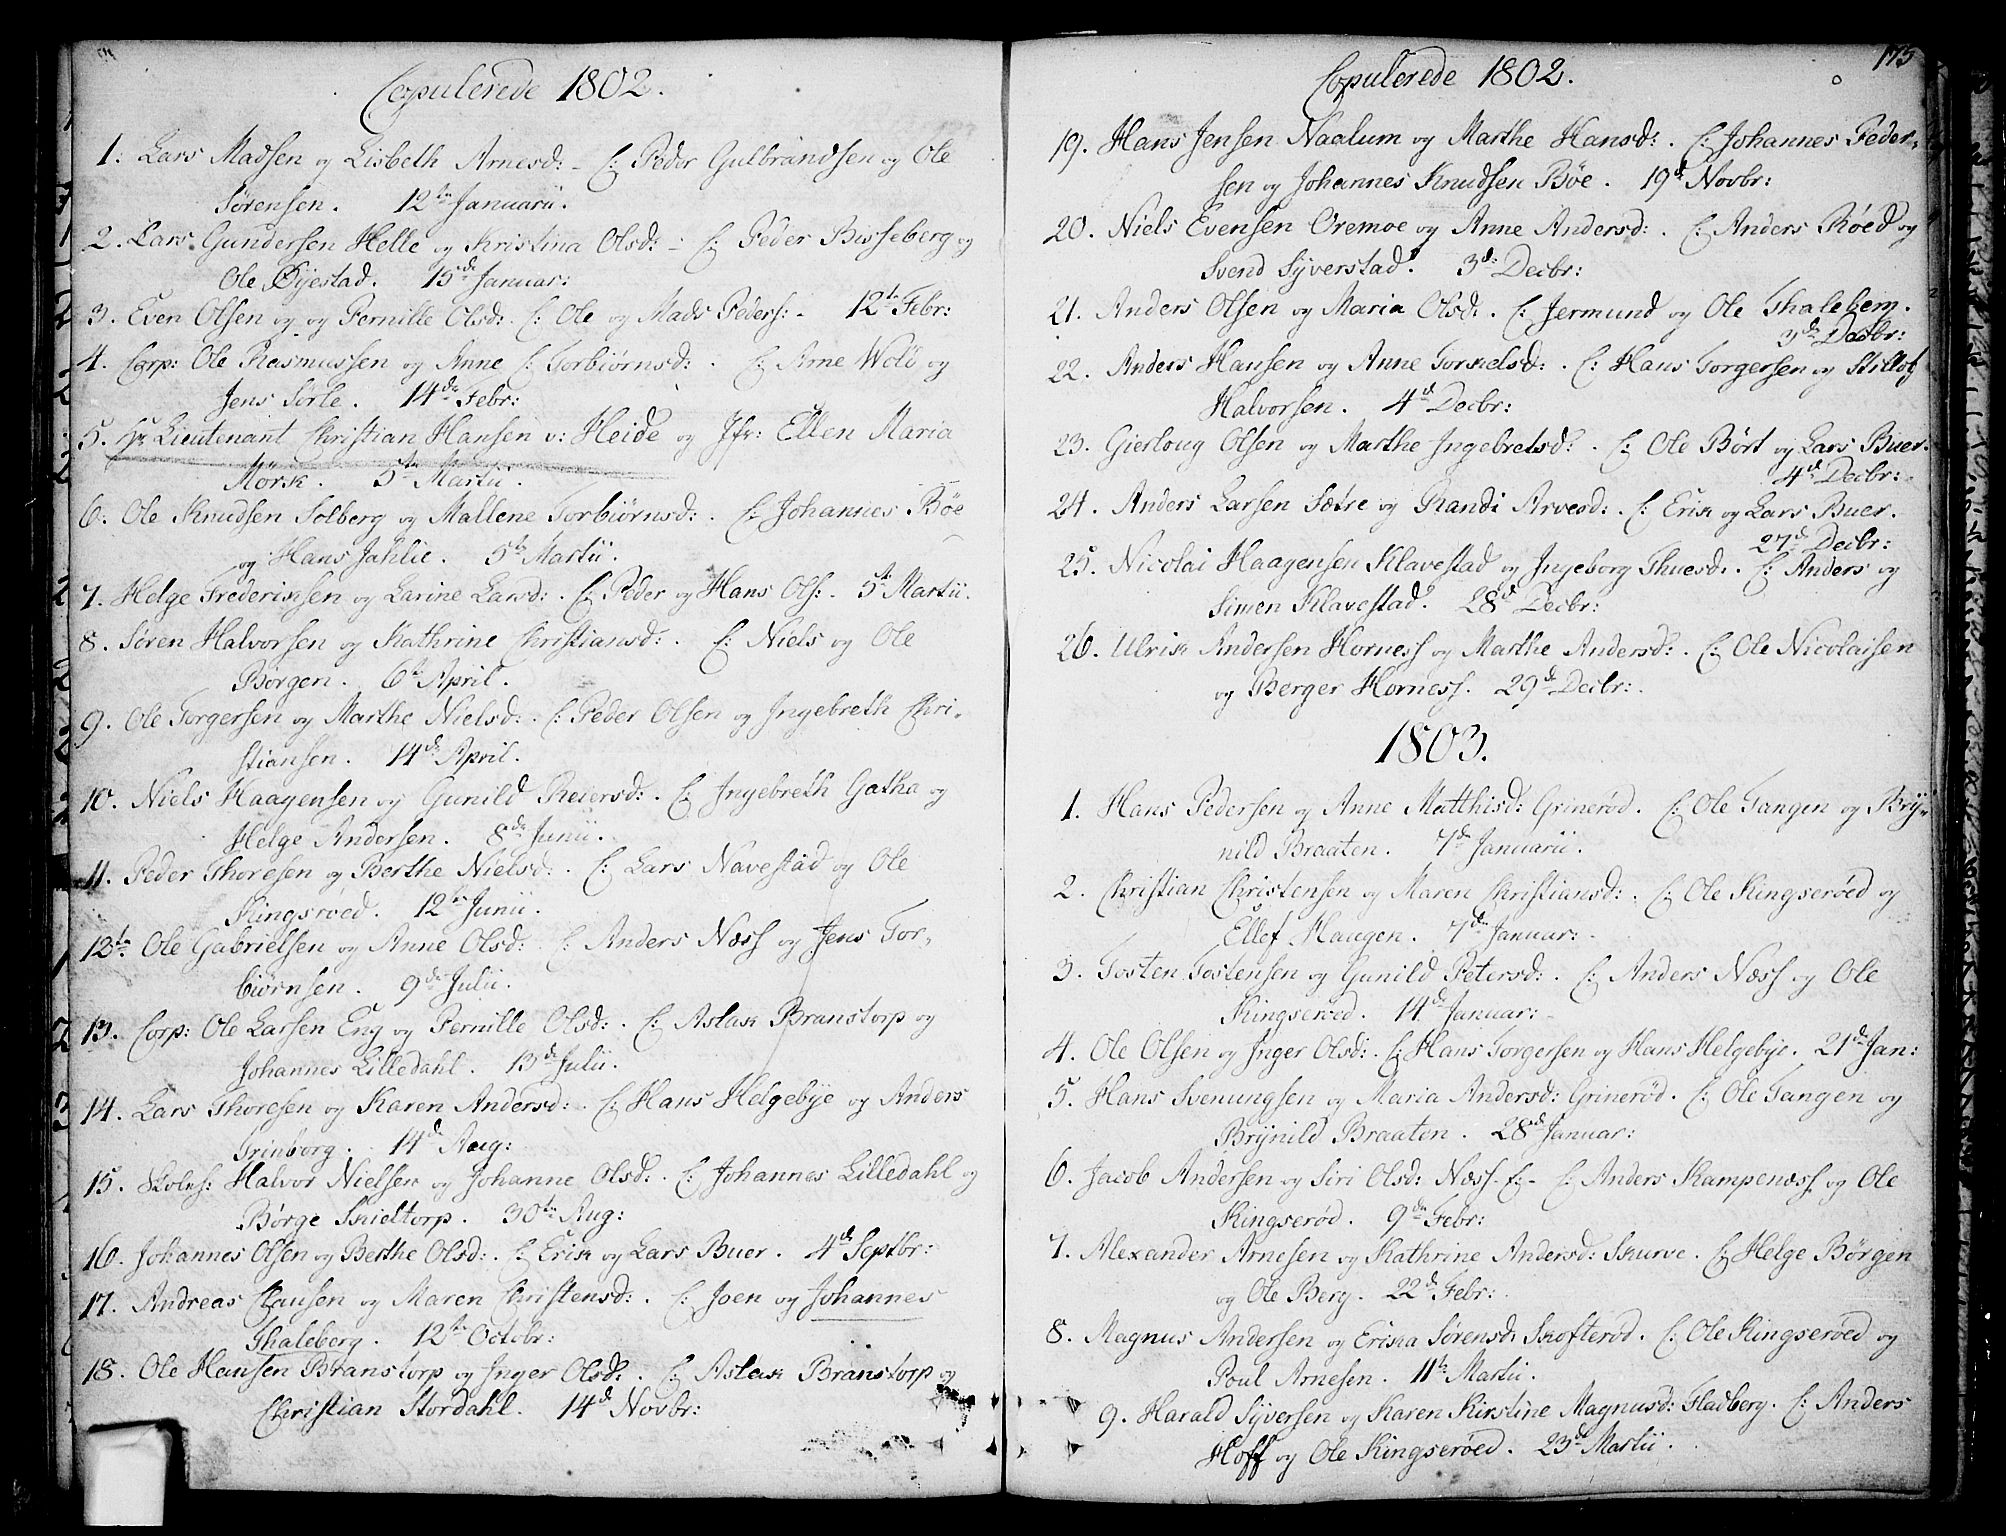 Copulerede 1802.
1. Lars Madsen og Lisbeth Arnesd: - C: Peder Gulbrandsen og Ole
Sørensen. 12te Januarii.
2. Lars Gundersen Helle og Kristina Olsd: - C: Peder Bisseberg og
Ole Øyestad. 15de Januar:
3. Even Olsen og og Pernille Olsd: C: Ole og Mads Peders: - 12te Febr:
4. Corp: Ole Rasmussen og Anne C: Torbiørnsd: . C: Arne Wolö og
Jens Sørle. 14de Febr:
5. Hr Lieutenant Christian Hansen v: Heide og Jfr: Ellen Maria
Mörsk. 5te Martii.
6. Ole Knudsen Solberg og Mallene Torbiørnsd: . C: Johannes Böe
og Hans Jahlie. 5te Martii.
7. Helge Frederiksen og Larine Larsd: . C: Peder og Hans Ols: . 5te Martii.
8. Sören Halvorsen og Kathrine Christiansd: . C: Niels og Ole
Börgen. 6te April.
9. Ole Torgersen og Marthe Nielsd: . C: Peder Olsen og Ingebreth Chri-
stiansen. 14de April.
10. Niels Haagensen og Gunild Reiersd: . C: Ingebreth Gatha og
Helge Andersen. 8de Junii.
11. Peder Thoresen og Berthe Nielsd: . C: Lars Navestad og Ole
Kingsrøed. 12te Junii.
12te Ole Gabrielsen og Anne Olsd: C: Anders Næss og Jens Tor-
biörnsen. 9de Julii.
13. Corp: Ole Larsen Eng og Pernille Olsd: . C: Aslak Branstorp og
Johannes Lilledahl. 13de Julii.
14. Lars Thoresen og Karen Andersd: . C: Hans Helgebye og Anders
Grinborg. 14d Aug:
15. Skoleh: Halvor Nielsen og Johanne Olsd: . C: Johannes Lilledahl og
Börge Skieltorp. 30te Aug:
16. Johannes Olsen og Berthe Olsd: . C: Erik og Lars Buer. 4d Septbr:
17. Andreas Clausen og Maren Christensd: . C: Joen og Johannes
Thaleberg. 12te Octobr:
18. Ole Hansen Branstorp og Inger Olsd: . C: Aslak Branstorp og
Christian Stordahl. 14d Novbr:
175
Copulerede 1802.
19. Hans Jensen Naalum og Marthe Hansd: . C: Johannes Peder-
sen og Johannes Knudsen Böe. 19d Novbr:
20. Niels Evensen Oremoe og Anne Andersd: . C: Anders Röed og
Svend Syverstad. 3d Decbr:
21. Anders Olsen og Maria Olsd: . C: Jermund og Ole Thalebem.
3de Decbr:
22. Anders Hansen og Anne Torkielsd: . C: Hans Torgersen og Kittof
Halvorsen. 4d Decbr:
23. Gierloug Olsen og Marthe Ingebretsd: . C: Ole Bört og Lars Buer.
4d Decbr:
24. Anders Larsen Sætre og Randi Arvesd: . C: Erik og Lars Buer.
27d Decbr:
25. Nicolai Haagensen Klavestad og Ingeborg Thuesd: . C: Anders og
Simen Klavestad. 28d Decbr:
26. Ulrik Andersen Horness og Marthe Andersd: . C: Ole Nicolaisen
og Berger Horness. 29d Decbr:
1803.
1. Hans Pedersen og Anne Matthisd: Grinerød. C: Ole Tangen og Bry-
nild Braaten. 7de Januarii.
2. Christian Christensen og Maren Christiansd: . C: Ole Kingserøed og
Ellef Haugen. 7de Januar:
3. Tosten Tostensen og Gunild Petersd: . C: Anders Næss og Ole
Kingserøed. 14de Januar:
4. Ole Olsen og Inger Olsd: . C: Hans Torgersen og Hans Helgebye. 21d Jan:
5. Hans Svenungsen og Maria Andersd: Grinerød. C: Ole Tangen og
Brynild Braaten. 28d Januar:
6. Jacob Andersen og Siri Olsd: Næss - C: Anders Kampenæss og Ole
Kingserød. 9de Febr:
7. Alexander Arnesen og Kathrine Andersd: Skurve. C: Helge Börgen
og Ole Berg. 22d Febr:
8. Magnus Andersen og Ericka Sørensd: Skofterød. C: Ole Kingserøed og
Poul Arnesen. 11te Martii.
9. Harald Syversen og Karen Kirstine Magnusd: Fladberg. C: Anders
Hoff og Ole Kingserøed. 23d Martii.